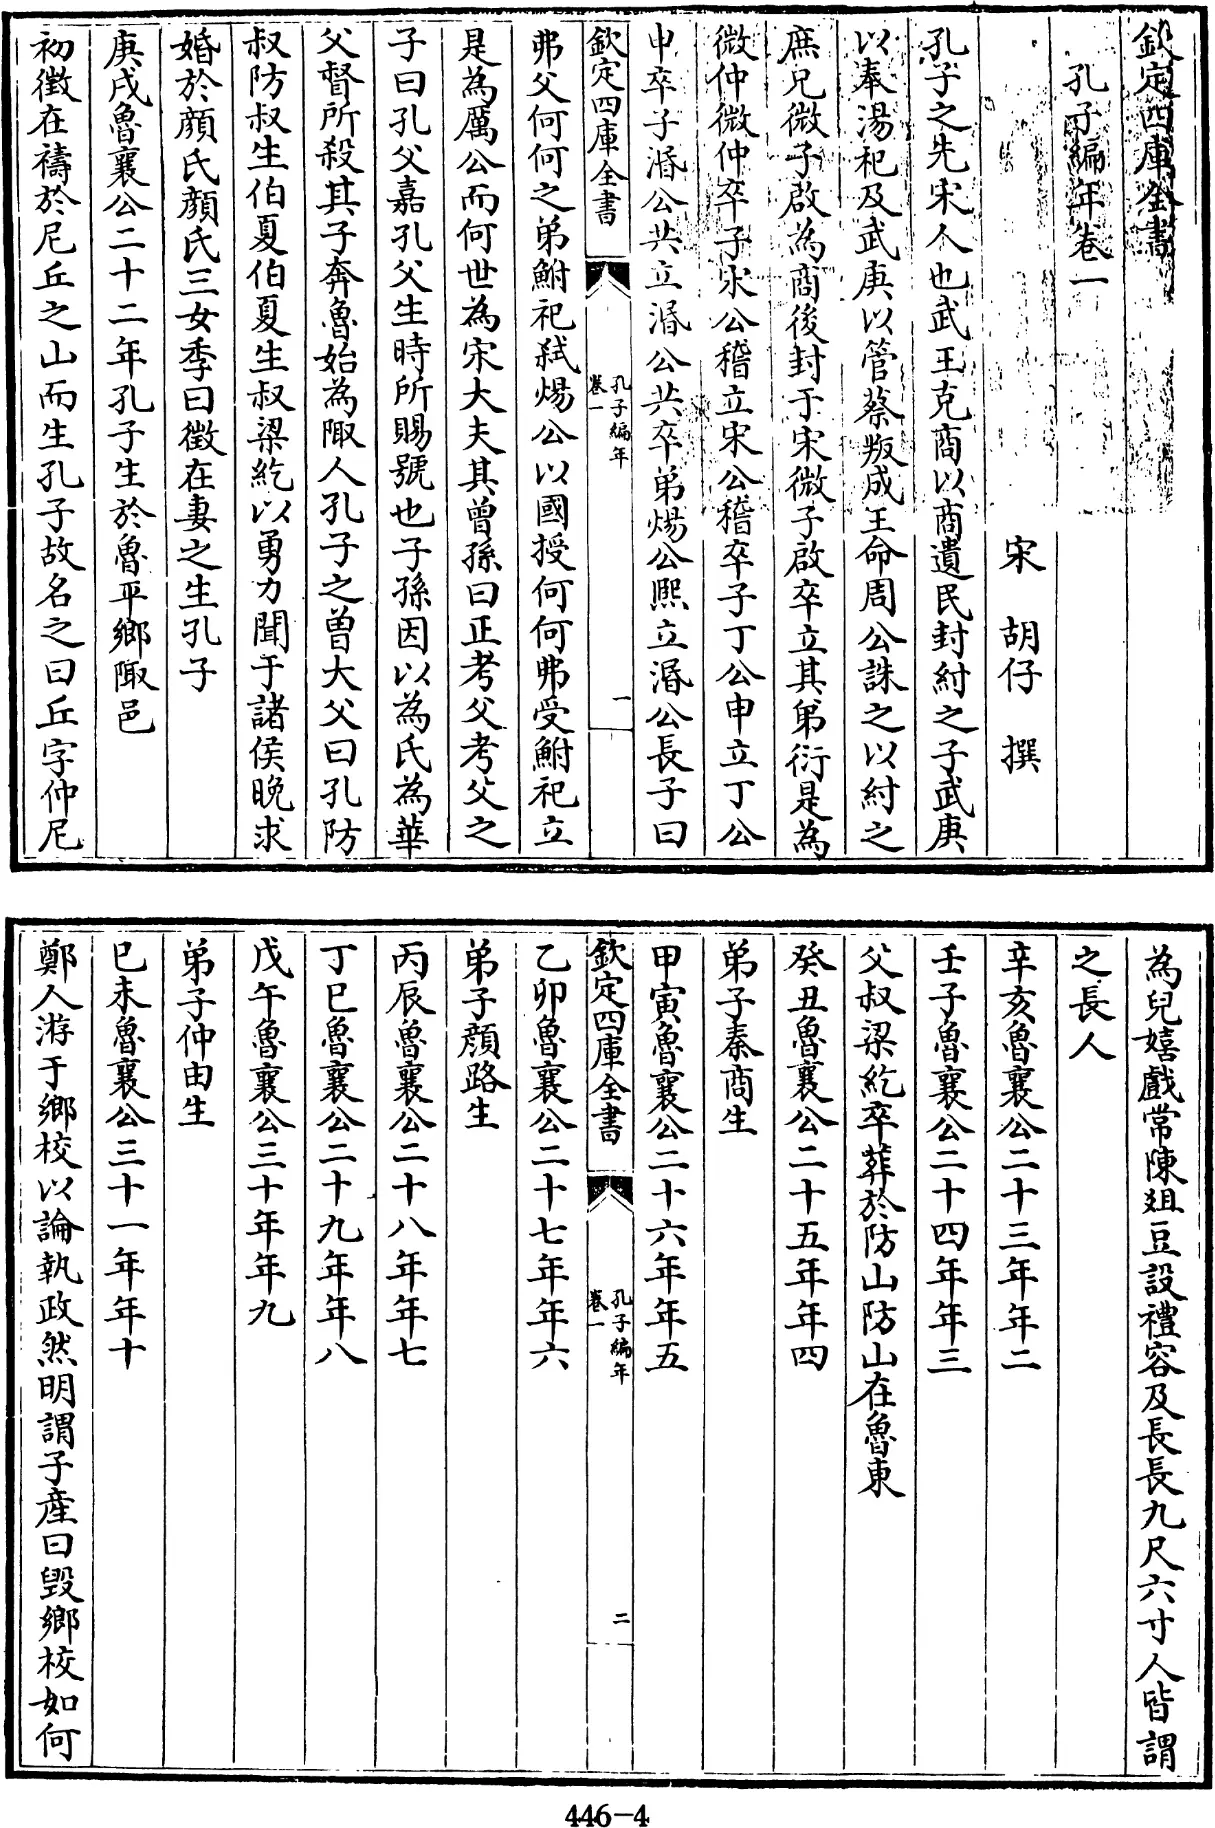 欽定四庫全書
孔子編年卷一
宋 胡仔 撰
孔子之先宋人也武王克商以商遺民封紂之子武庚
以奉湯祀及武庚以管蔡叛成王命周公誅之以紂之
庶兄微子啟為商後封于宋微子啟卒立其弟衍是為
微仲微仲卒子宋公稽立宋公稽卒子丁公申立丁公
申卒子湣公共立湣公共卒弟煬公熙立湣公長子曰
欽定四庫全書
孔子編年
卷一
一
弗父何何之弟鮒祀弒煬公以國授何何弗受鮒祀立
是為厲公而何世為宋大夫其曾孫曰正考父考父之
子曰孔父嘉孔父生時所賜號也子孫因以為氏為華
父督所殺其子奔魯始為陬人孔子之曾大父曰孔防
叔防叔生伯夏伯夏生叔梁紇以勇力聞于諸侯晚求
婚於顏氏顏氏三女季曰徵在妻之生孔子
庚戌魯襄公二十二年孔子生於魯平鄉陬邑
初徵在禱於尼丘之山而生孔子故名之曰丘字仲尼
為兒嬉戲常陳俎豆設禮容及長長九尺六寸人皆謂
之長人
辛亥魯襄公二十三年年二
壬子魯襄公二十四年年三
父叔梁紇卒葬於防山防山在魯東
癸丑魯襄公二十五年年四
弟子秦商生
甲寅魯襄公二十六年年五
欽定四庫全書
孔子編年
卷一
二
乙卯魯襄公二十七年年六
弟子顏路生
丙辰魯襄公二十八年年七
丁巳魯襄公二十九年年八
戊午魯襄公三十年年九
弟子仲由生
已未魯襄公三十一年年十
鄭人游于鄉校以論執政然明謂子產曰毀鄉校如何
446-4